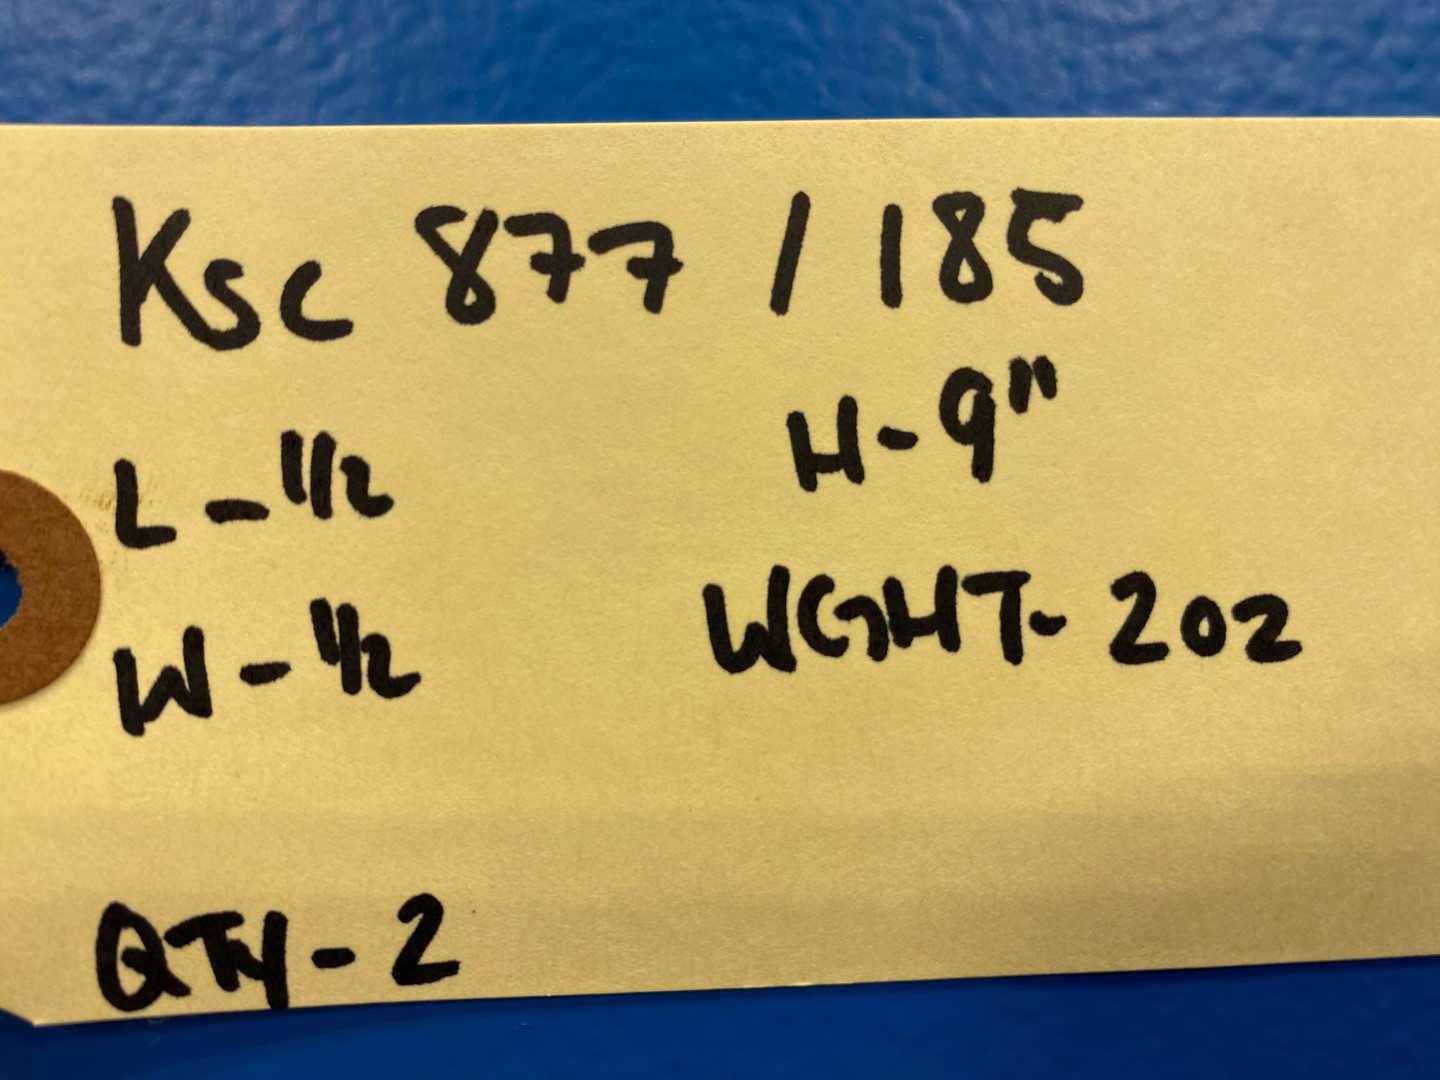 Ksc 877 / 185
H-9"
L-1/2
WGHT-2oz
W-1/2
QTY-2